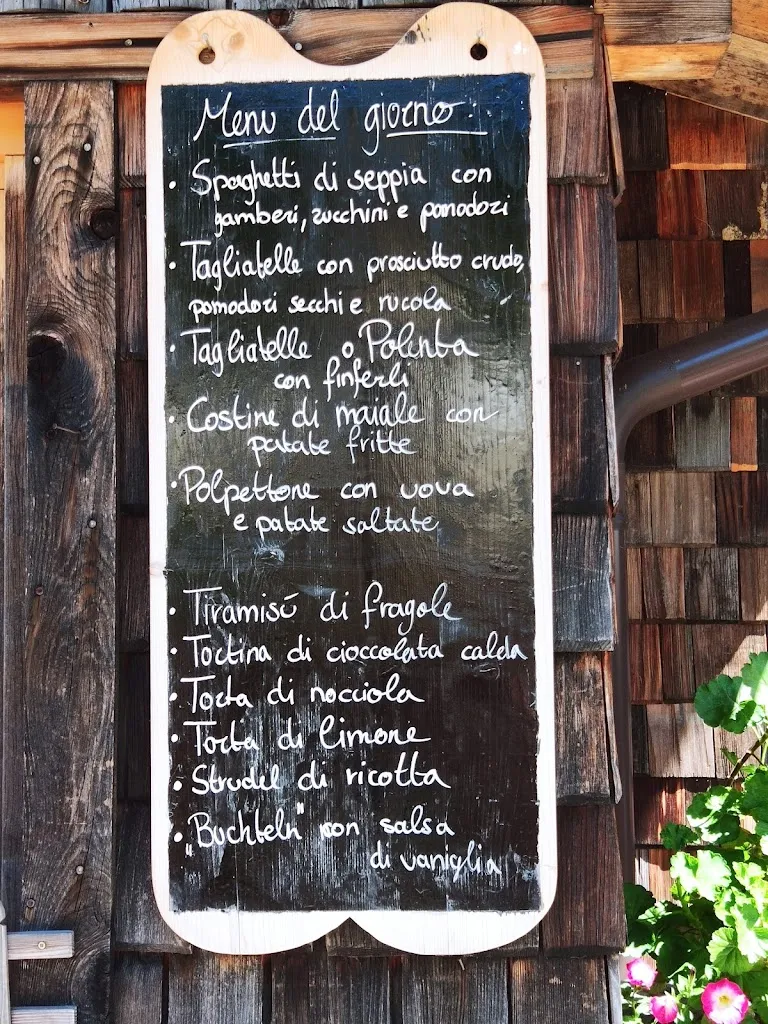 Menu del giorno
• Spaghetti di seppia con
gamberi, zucchini e pomodori
• Tagliatelle con prosciutto crudo,
pomodori secchi e rucola
• Tagliatelle o Polenta
con finferli
• Costine di maiale con
patate fritte
• Polpettone con uova
e patate saltate
• Tiramisú di fragole
• Tortina di cioccolata calda
• Torta di nocciola
• Torta di limone
• Strudel di ricotta
• "Buchteln" con salsa
di vaniglia